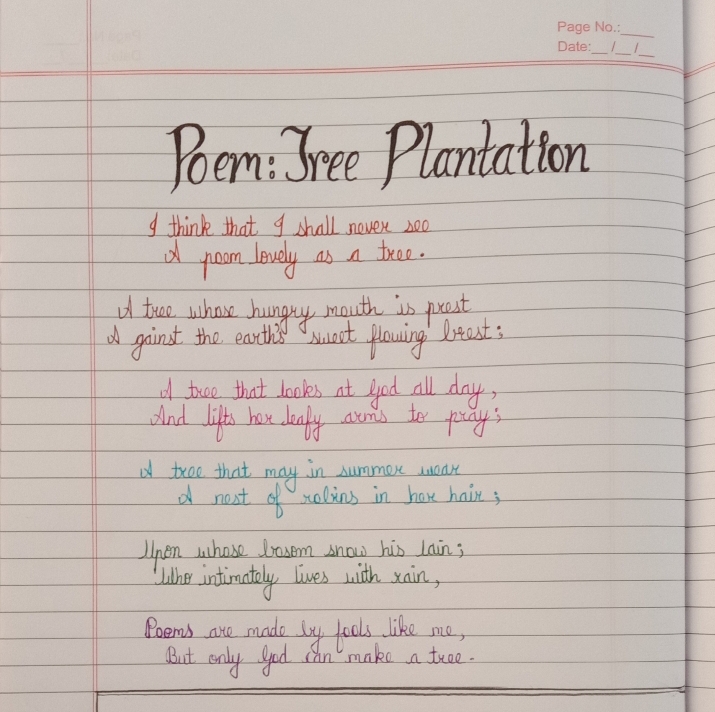 Page No.:____
Date:__/__/__
Poem: Tree Plantation
I think that I shall never see
A poem lovely as a tree.
A tree whose hungry mouth is prest
A gainst the earth's sweet flowing brest;
A tree that looks at God all day,
And lifts her leafy arms to pray;
A tree that may in summer wear
A nest of robins in her hair;
Upon whose bosom snow his lain;
Who intimately lives with rain,
Poems are made by fools like me,
But only God can make a tree.